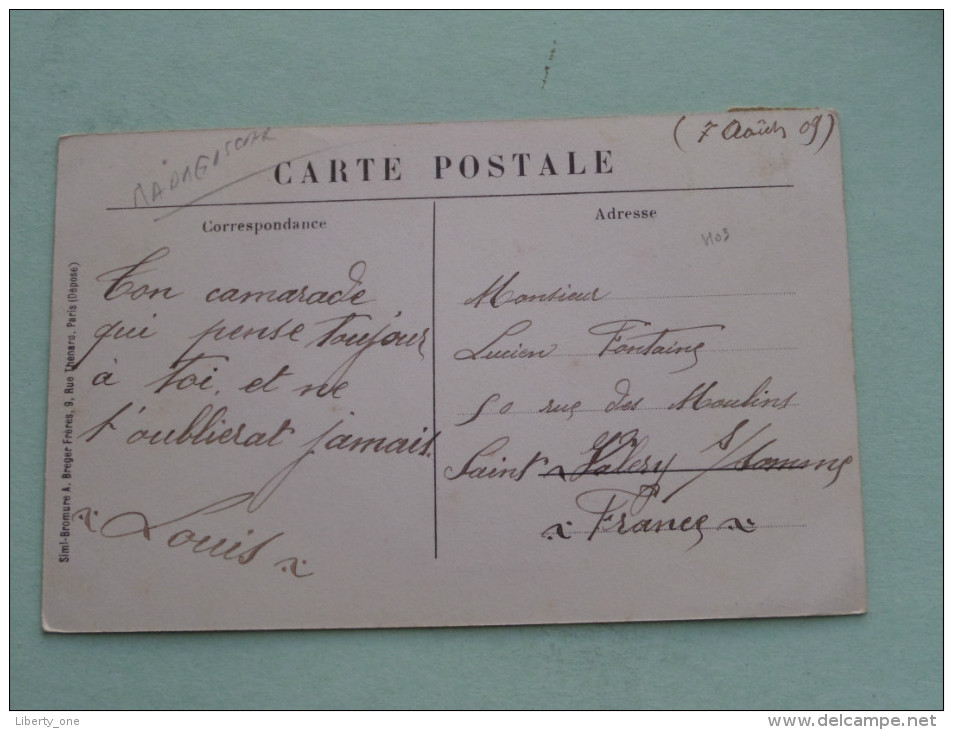 (7 Août 09)
MADAGASCAR
CARTE POSTALE
Correspondance
Adresse
Ton camarade
qui pense toujour
à toi, et ne
t'oublierat jamais.
Louis
Monsieur
Lucien Fontaine
50 rue des Moulins
Saint Valery s/Somme
France
Simi-Bromure A. Breger Frères, 9, Rue Thenard, Paris (Déposé)
Liberty_one
www.delcampe.net